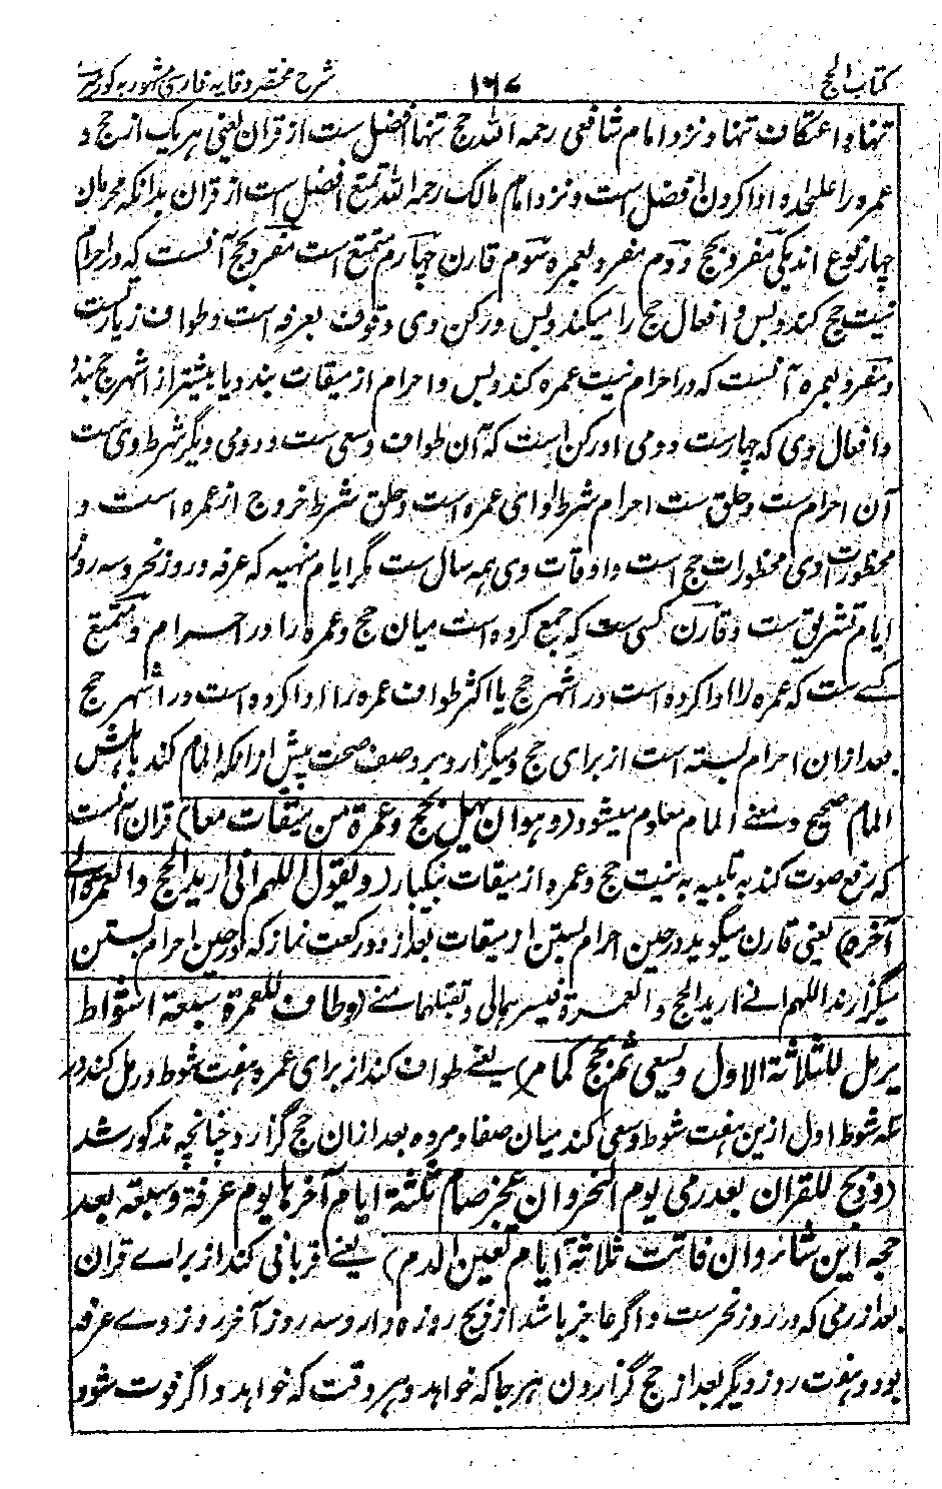 کتاب الحج ۱۶۷ شرح مختصر وقایه فارسی مشهور به کور
تنها و اعتکاف تنها و نزد امام شافعی رحمه الله حج تنها افضل ست از قران یعنی هر یک از حج و
عمره را علیحده ادا کردن افضل ست و نزد امام مالک رحمه الله تمتع افضل است از قران بدانکه محرمان
چهار نوع اند یکی مفرد بحج و دوم مفرد بعمره سوم قارن چهارم متمتع است مفرد بحج آنست که در احرام
نیت حج کند و بس و افعال حج را میکند و بس و رکن وی وقوف بعرفه است و طواف زیارتست
و مفرد بعمره آنست که در احرام نیت عمره کند و بس و احرام از میقات بندد یا پیشتر از اشهر حج بندد
و افعال وی که چهارست دو می او رکن است که آن طواف و سعی ست و دو می دیگر شرط وی ست
آن احرام ست و حلق ست احرام شرط ادای عمره است و حلق شرط خروج از عمره است و
محظورات وی محظورات حج است و اوقات وی همه سال ست مگر ایام منهیه که عرفه و روز نحر و سه روز
ایام تشریق ست و قارن کسی ست که جمع کرده است میان حج و عمره را در احرام و متمتع
کسے ست که عمره را ادا کرده است در اشهر حج یا اکثر طواف عمره را ادا کرده است در اشهر حج
بعد ازان احرام بسته است از برای حج و میگزارد بر وصف صحت پیش از انکه المام کند باهلش
المام صحیح و معنے المام معلوم میشود (و هو ان یهل بحج و عمرة من میقات معا) قران آنست
که رفع صوت کند به تلبیه به نیت حج و عمره از میقات بیکبار (و یقول اللهم انی ارید الحج و العمرة الی
آخره) یعنی قارن میگوید در حین احرام بستن از میقات بعد از دو رکعت نماز که در حین احرام بستن
میگزارند اللهم انے ارید الحج و العمرة فیسرهما لی و تقبلهما منے (و طاف للعمرة سبعة اشواط
یرمل للثلاثة الاول و یسعی ثم یحج کما مر) یعنے طواف کند از برای عمره هفت شوط و رمل کند در
سه شوط اول ازین هفت شوط و سعی کند میان صفا و مروه بعد ازان حج گزارد چنانچه مذکور شد
(و ذبح للقران بعد رمی یوم النحر و ان عجز صام ثلثة ایام آخرها یوم عرفة و سبعة بعد
حجه این شاء و ان فاتت ثلاثة ایام تعین الدم) یعنے قربانی کند از براے قران
بعد از رمی که در روز نحرست و اگر عاجز باشد از ذبح روزه دارد سه روز آخر روز وے عرفه
بود و هفت روز دیگر بعد از حج گزاردن هر جا که خواهد و هر وقت که خواهد و اگر فوت شود